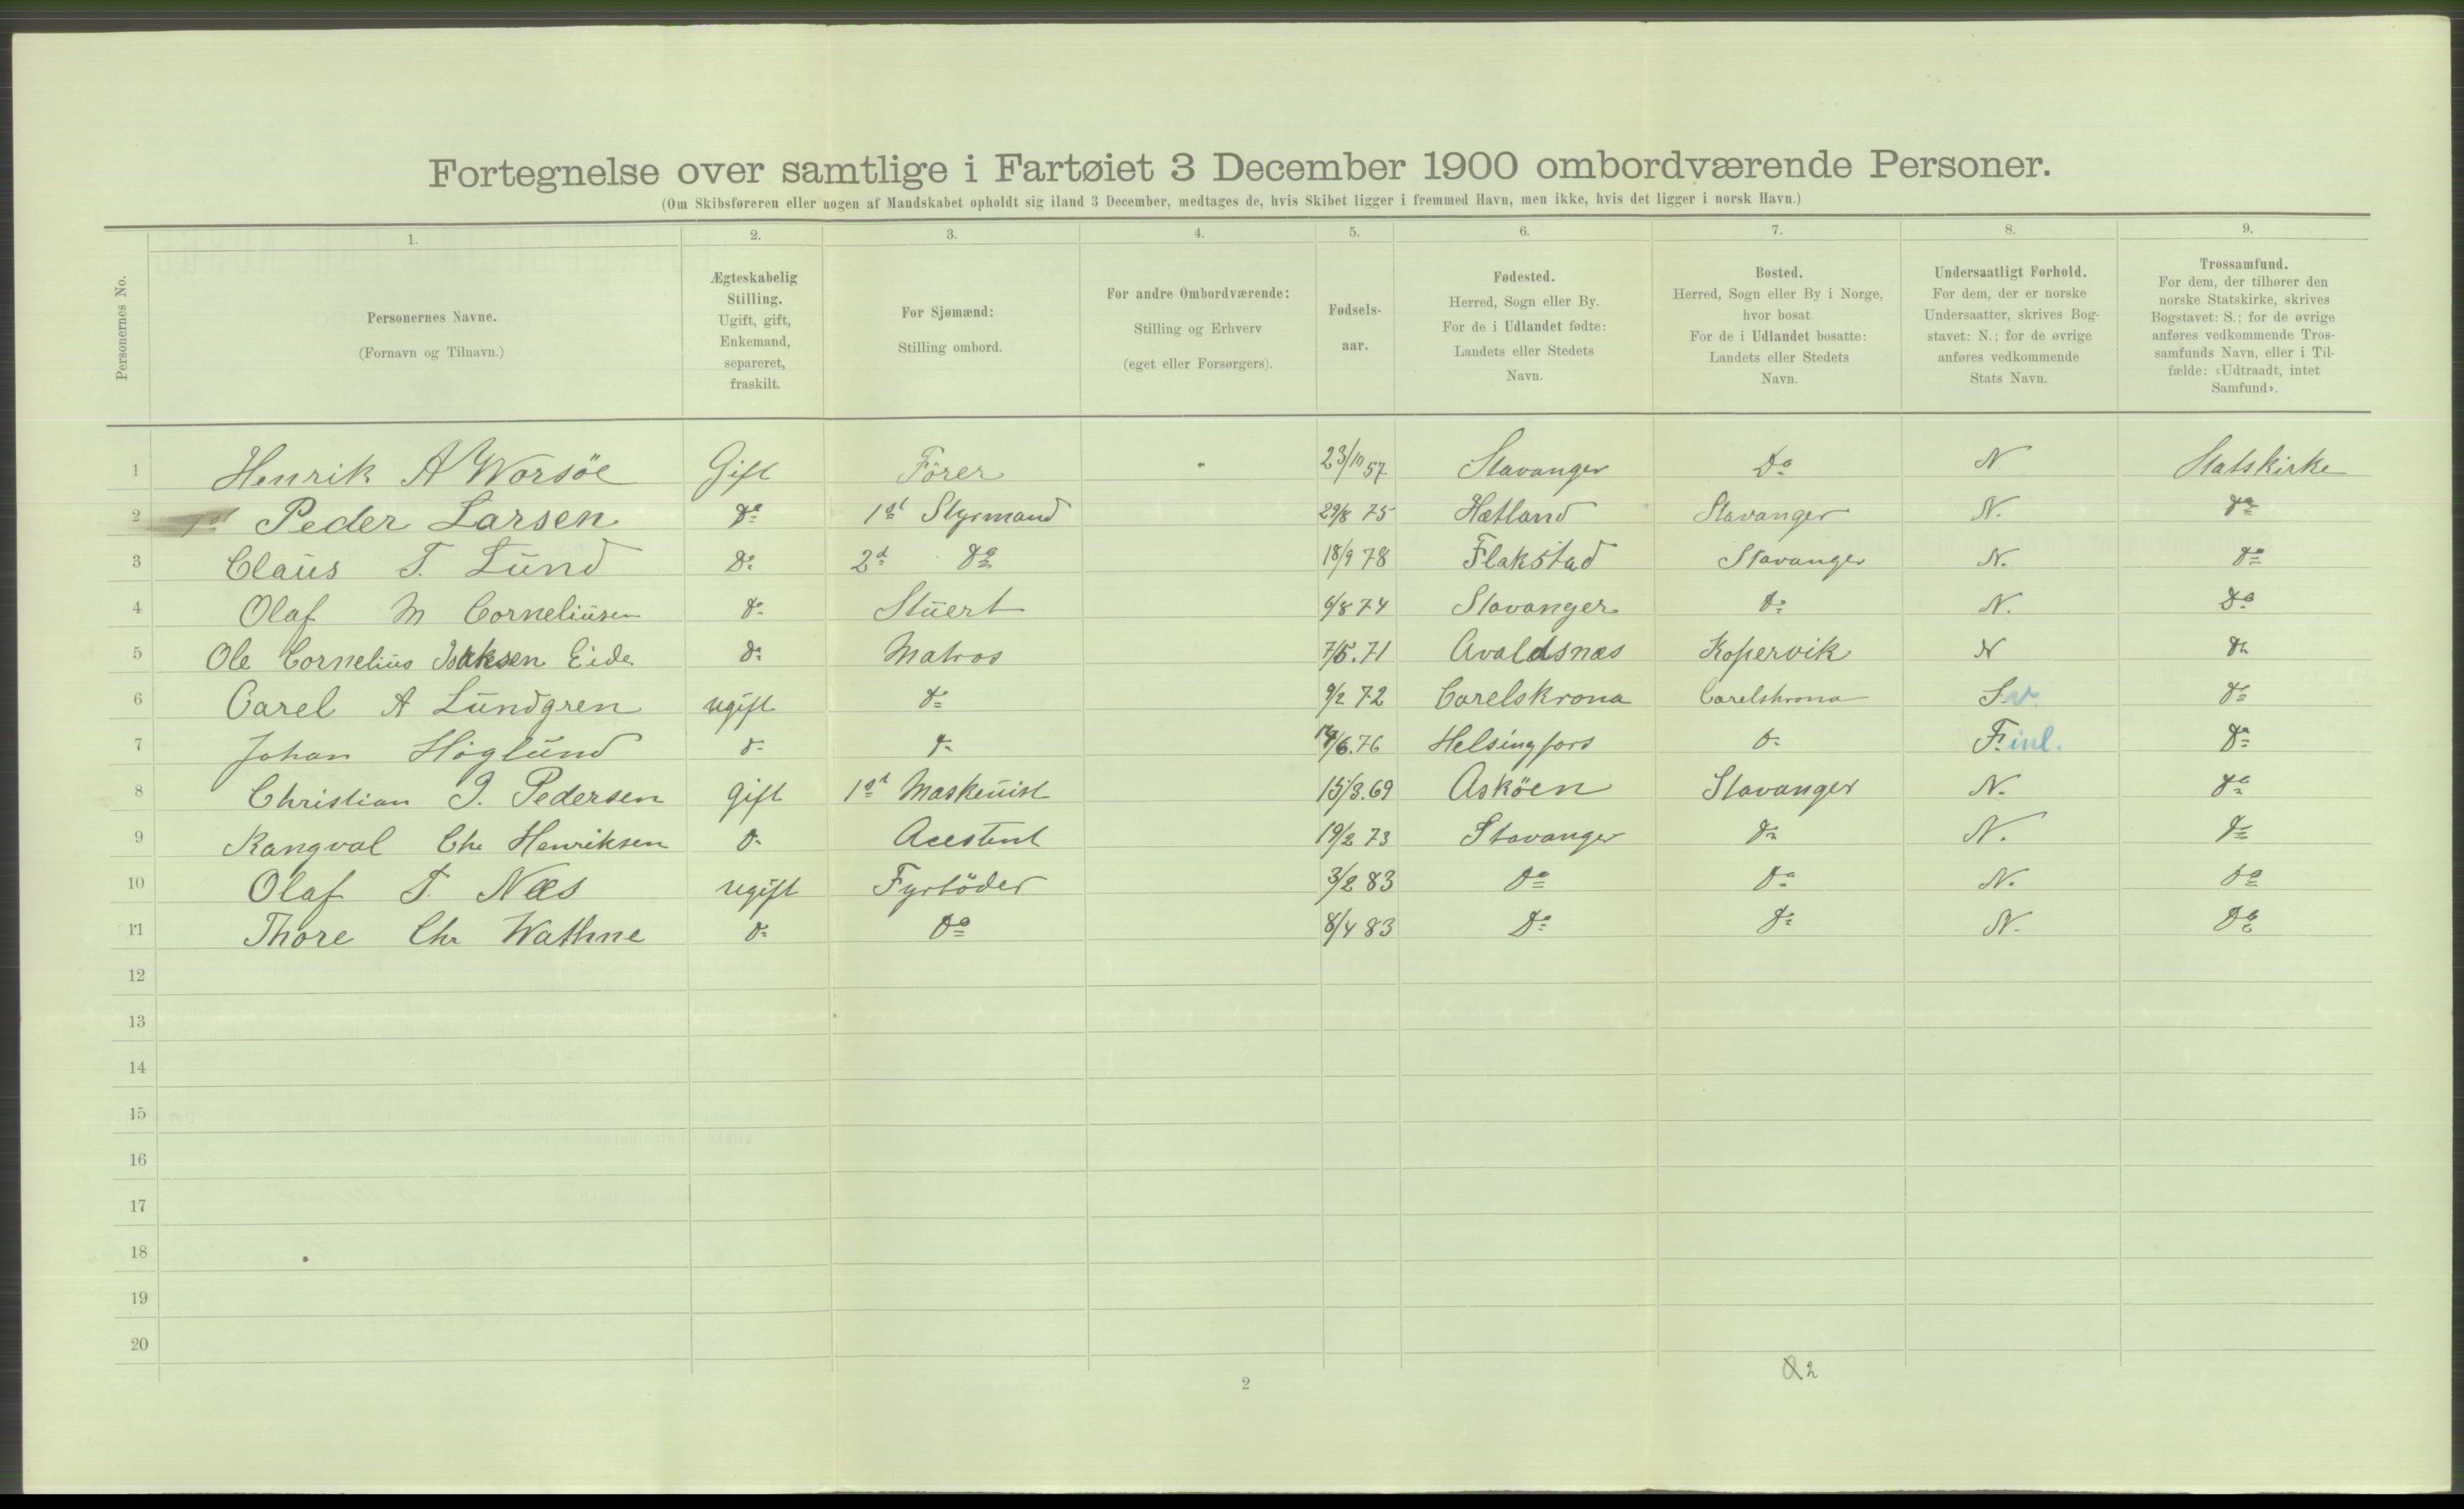 Fortegnelse over samtlige i Fartøiet 3 December 1900 ombordværende Personer.
(Om Skibsføreren eller nogen af Mandskabet opholdt sig iland 3 December, medtages de, hvis Skibet ligger i fremmed Havn, men ikke, hvis det ligger i norsk Havn.)
1. 2. 3. 4. 5. 6. 7. 8. 9.
Personernes No.
Personernes Navne.
(Fornavn og Tilnavn.)
Ægteskabelig
Stilling.
Ugift, gift,
Enkemand,
separeret,
fraskilt.
For Sjømænd:
Stilling ombord.
For andre Ombordværende:
Stilling og Erhverv
(eget eller Forsørgers).
Fødsels-
aar.
Fødested.
Herred, Sogn eller By.
For de i Udlandet fødte:
Landets eller Stedets
Navn.
Bosted.
Herred, Sogn eller By i Norge,
hvor bosat.
For de i Udlandet bosatte:
Landets eller Stedets
Navn.
Undersaatligt Forhold.
For dem, der er norske
Undersaatter, skrives Bog-
stavet: N.; for de øvrige
anføres vedkommende
Stats Navn.
Trossamfund.
For dem, der tilhører den
norske Statskirke, skrives
Bogstavet: S.; for de øvrige
anføres vedkommende Tros-
samfunds Navn, eller i Til-
fælde: «Udtraadt, intet
Samfund».
1 Henrik A Worsöe Gift Förer 23/10 57 Stavanger Do N. Statskirke
2 Peder Larsen Do 1st Styrmand 29/8 75 Hetland Stavanger N. Do
3 Claus T. Lund Do 2d Do 18/9 78 Flakstad Stavanger N. Do
4 Olaf M Corneliusen Do Stuert 6/8 74 Stavanger Do N. Do
5 Ole Cornelius Isaksen Eide Do Matros 7/5. 71 Avaldsnæs Kopervik N Do
6 Carel A Lundgren ugift Do 9/2 72 Carelskrona Carelskrona Sv. Do
7 Johan Höglund Do Do 14/6. 76 Helsingfors Do Finl. Do
8 Christian J. Pedersen gift 1st Maskenist 15/3. 69 Asköen Stavanger N. Do
9 Rangval Chr Henriksen Do Acestent 19/2 73 Stavanger Do N. Do
10 Olaf T. Næs ugift Fyrböder 3/2 83 Do Do N. Do
11 Thore Chr Wathne Do Do 8/4 83 Do Do N. Do
12
13
14
15
16
17
18
19
20
2